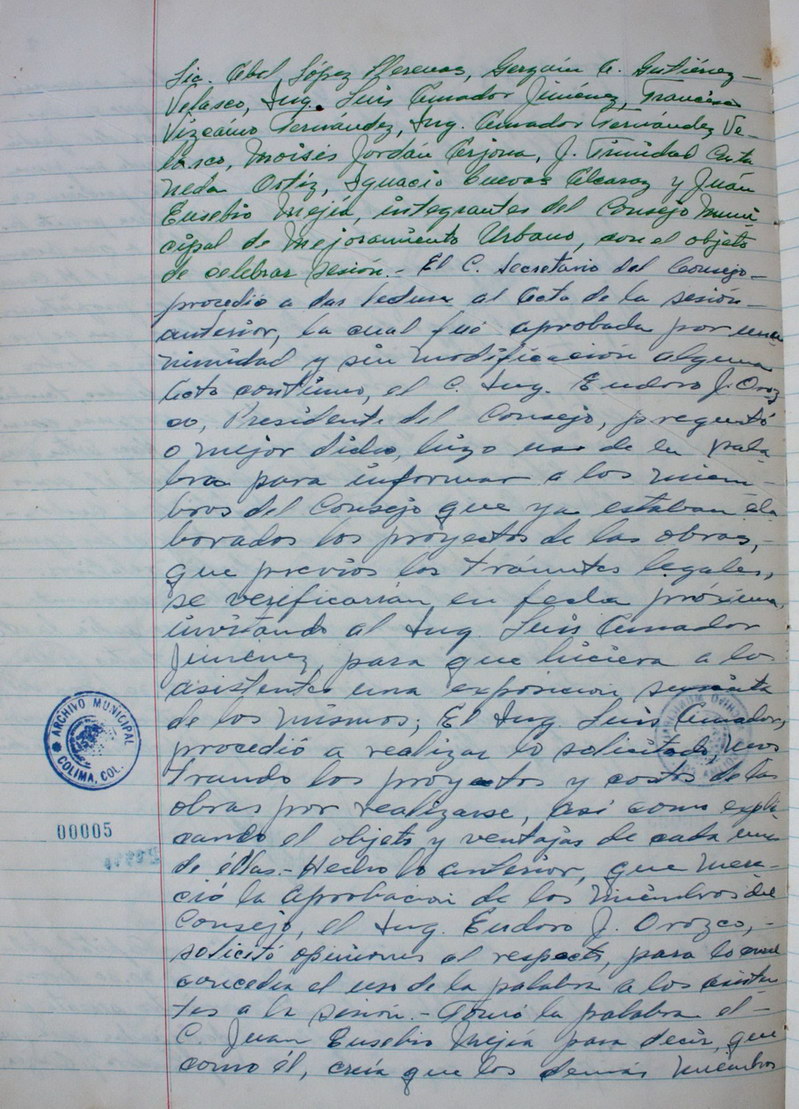 Lic. Abel López Llerenas, Gerzaín A. Gutiérrez-
Velasco, Ing. Luis Amador Jiménez, Francisco
Vizcaíno Fernández, Ing. Amador Fernández Ve-
lasco, Moisés Jordán Cerjona, J. Trinidad Casta
neda Ortíz, Ignacio Cuevas Alcaraz y Juán
Eusebio Mejía, integrantes del Consejo Muni-
cipal de Mejoramiento Urbano, con el objeto
de celebrar sesión.- El C. Secretario del Consejo-
procedió a dar lectura al acta de la sesión-
anterior, la cual fué aprobada por una
nimidad y sin modificación alguna
Acto continuo, el C. Ing. Eudoro J. Oroz
co, Presidente del Consejo, preguntó
o mejor dicho, hizo uso de la pala-
bra para informar a los miem-
bros del Consejo que ya estaban ela
borados los proyectos de las obras,-
que previos los trámites legales,
se verificarían en fecha próxima,
invitando al Ing. Luis Amador
Jiménez, para que hiciera a los
asistentes una exposición sucinta
de los mismos; El Ing. Luis Amador,
procedió a realizar lo solicitado, mos
trando los proyectos y costos de las
obras por realizarse, así como expli
cando el objeto y ventajas de cada una
de éllas.- Hecho lo anterior, que mere-
ció la aprobación de los miembros del
Consejo, el Ing. Eudoro J. Orozco,-
solicitó opiniones al respecto, para lo cual
concedía el uso de la palabra a los asisten
tes a la sesión.- Tomó la palabra el-
C. Juan Eusebio Mejía para decir, que
como él, creía que los demás miembros
ARCHIVO MUNICIPAL
COLIMA, COL.
00005